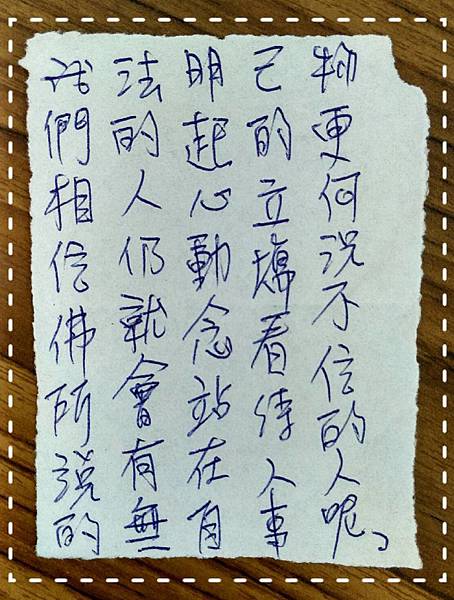 我們相信佛所說的
法的人仍就會有無
明起心動念站在自
己的立場看待人事
物更何況不信的人呢。